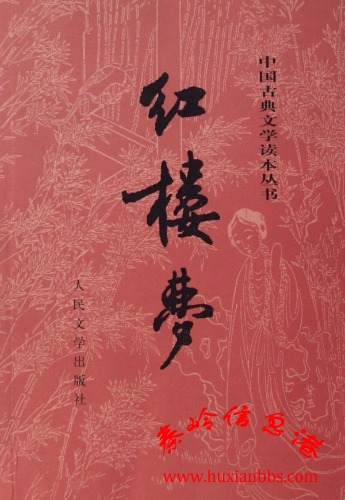 中国古典文学读本丛书
红楼梦
人民文学出版社
秦岭信息港
www.huxianbbs.com